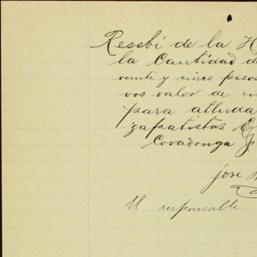 Resebi de la H
la Cantidad d
veinte y cinco pesos
vos valor de
para alluda
zapatistas
Covadonga
jose
El responsable